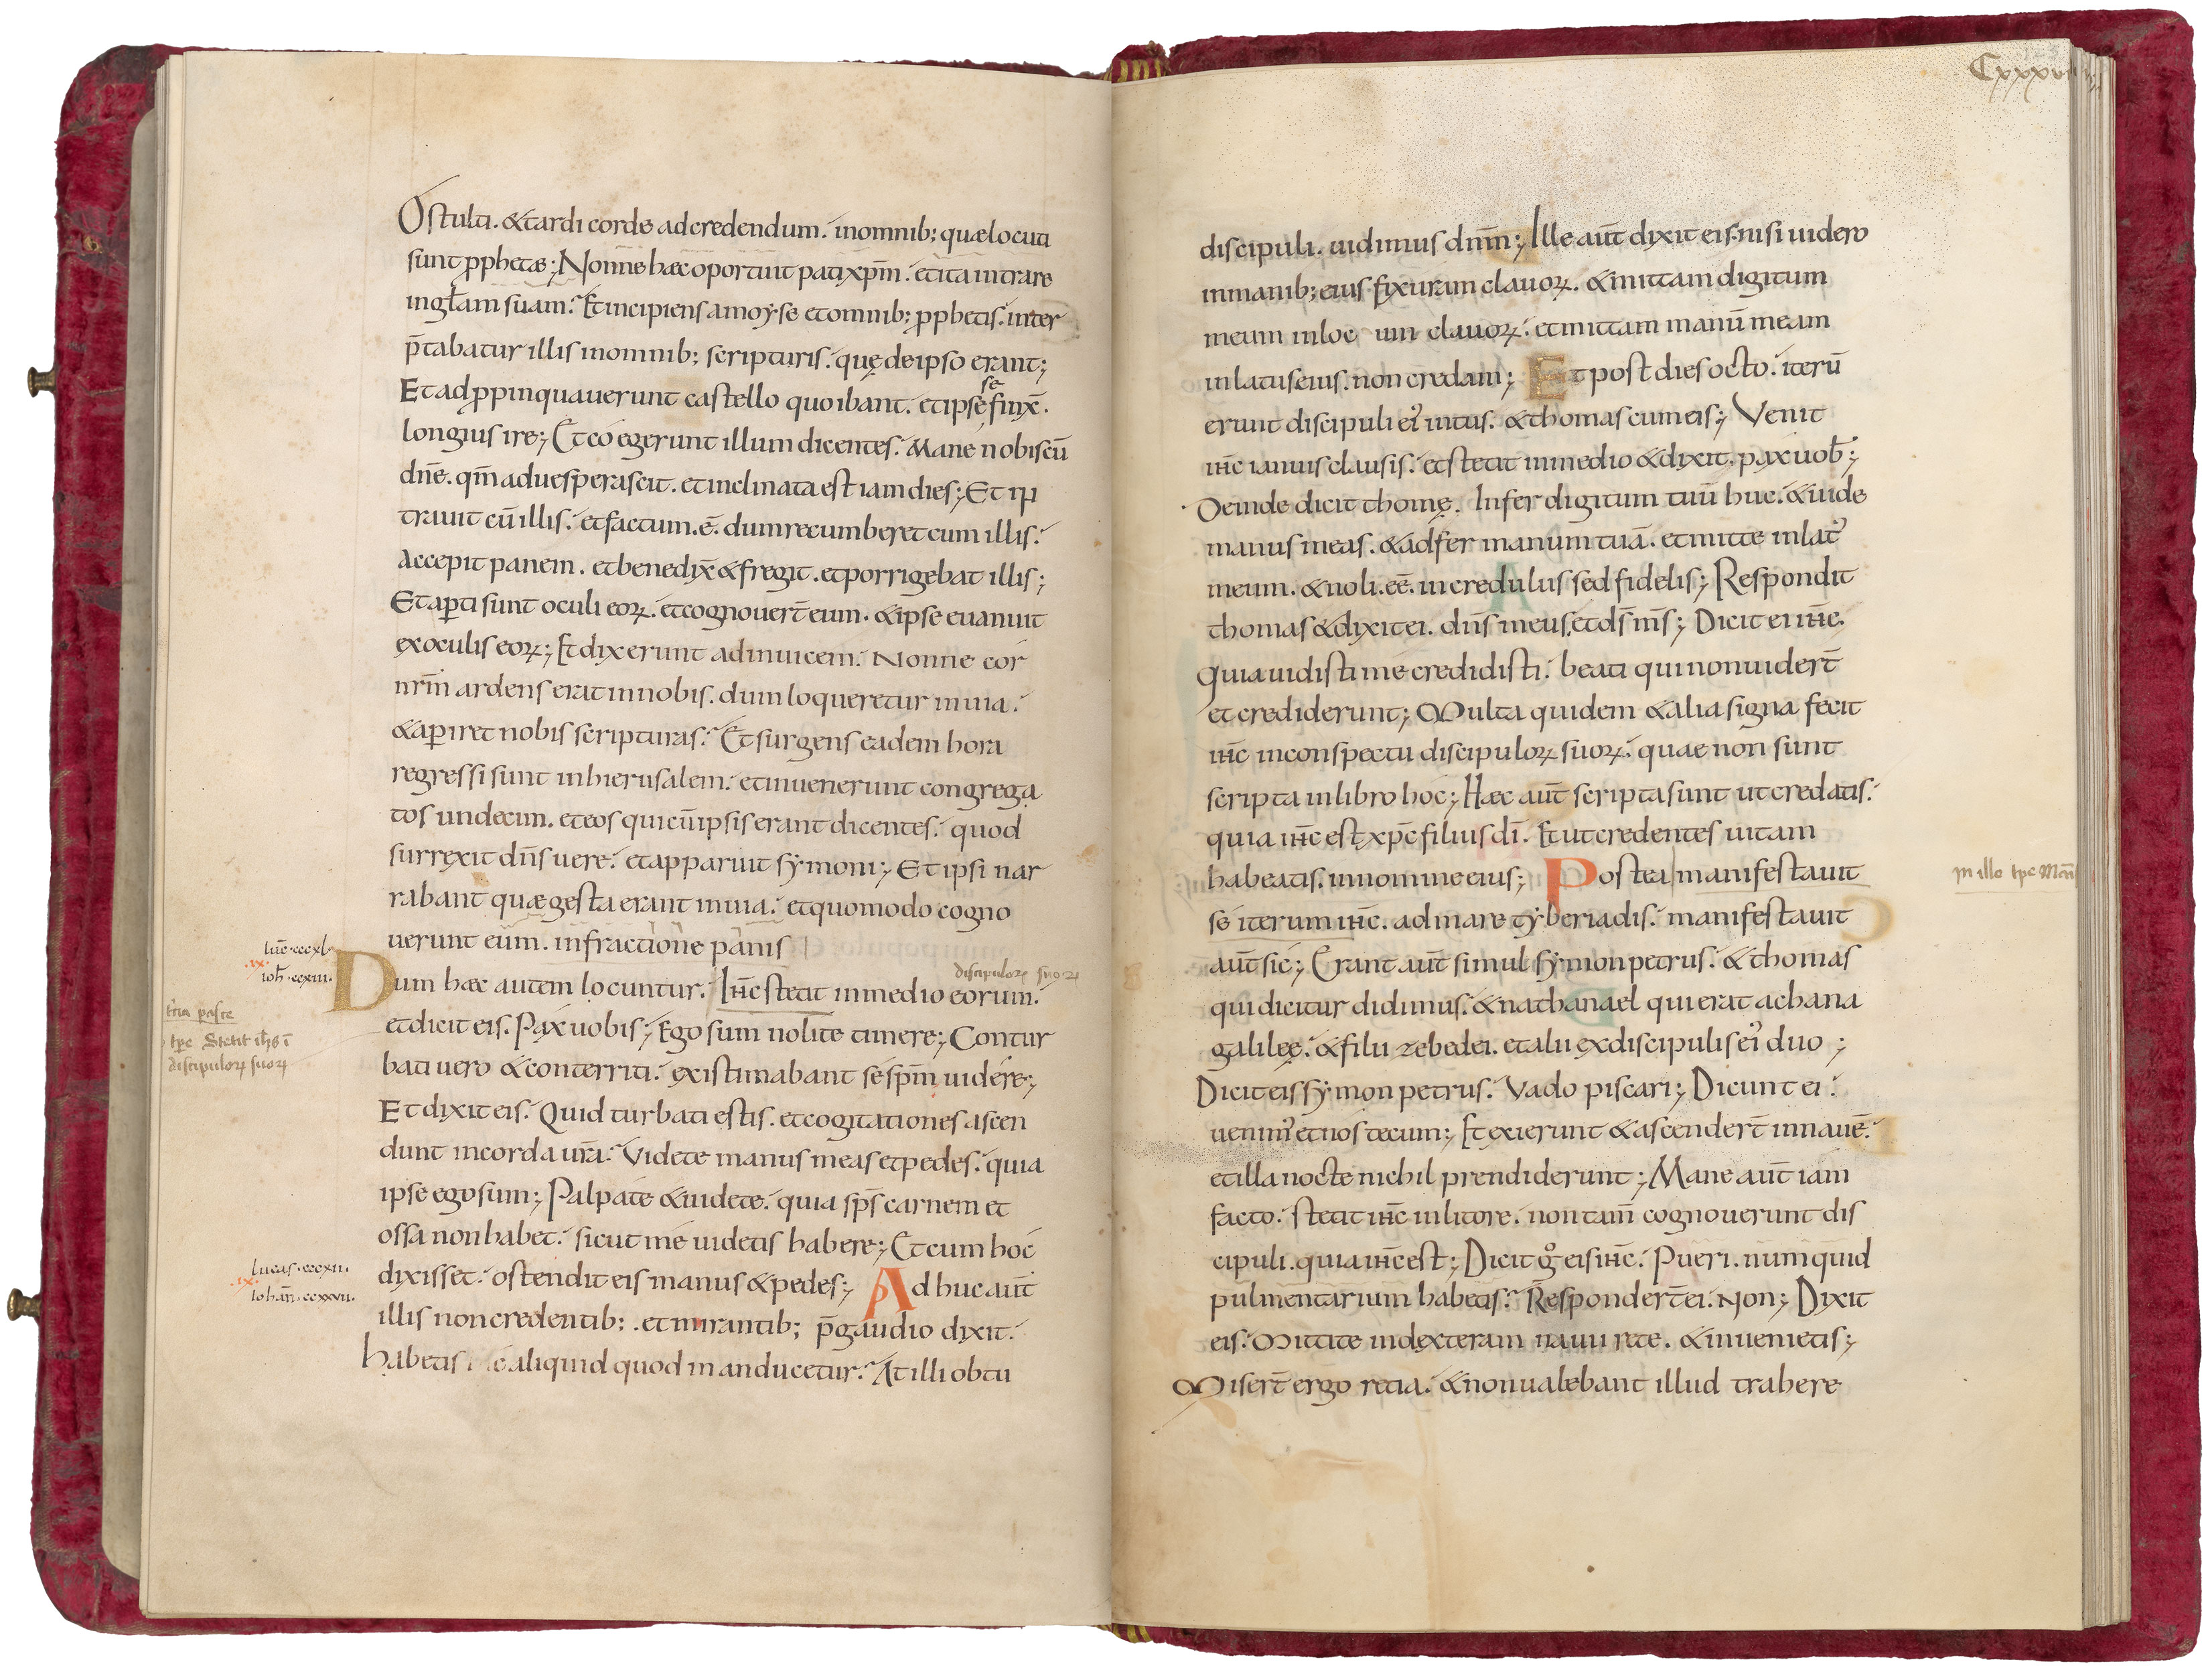 O stulti. & tardi corde ad credendum. in omnib; quæ locuti
sunt pphetæ; Nonne hæc oportuit pati xpm̄. et ita intrare
in gl̄am suam. Et incipiens a moyse et omnib; pphetis. inter
p̄tabatur illis in omnib; scripturis. quę de ipso erant;
Et adppinquauerunt castello quo ibant. et ipse se finx̄.
longius ire; Et coegerunt illum dicentes. Mane nobiscū
dn̄e. qm̄ aduesperascit. et inclinata est iam dies; Et in
trauit cū illis. et factum. ē. dum recumberet cum illis.
Accepit panem. et benedix̄ & fregit. et porrigebat illis;
Et apti sunt oculi eoꝝ. et cognouer̄t eum. & ipse euanuit
ex oculis eoꝝ; Et dixerunt adinuicem. Nonne cor
nrm̄ ardens erat in nobis. dum loqueretur in uia.
& apiret nobis scripturas. Et surgens eadem hora
regressi sunt in hierusalem. et inuenerunt congrega
tos undecim. et eos qui cū ipsis erant dicentes. quod
surrexit dn̄s uere. et apparuit symoni; Et ipsi nar
rabant quæ gesta erant in uia. et quomodo cogno
uerunt eum. in fractione panis
luc̄ ccc xl
.ix.
ioh̄ ccxiii.
discipuloꝝ suoꝝ
Dum hæc autem locuntur. Ih̄c stetit in medio eorum.
t̄pe Stetit ih̄s ī
discipuloꝝ suoꝝ
et dicit eis. Pax uobis; Ego sum nolite timere; Contur
bati uero & conterriti. existimabant se spm̄ uidere;
Et dixit eis. Quid turbati estis. et cogitationes ascen
dunt in corda ur̄a. Videte manus meas et pedes. quia
ipse ego sum; Palpate & uidete. quia sps̄ carnem et
ossa non habet. sicut me uidetis habere; Et cum hoc
lucas. cccxli.
.ix.
Iohan̄. ccxxvii.
dixisset. ostendit eis manus & pedes; Ad huc aut̄
illis non credentib;. et mirantib; p̄ gaudio dixit.
habetis aliquid quod manducetur. At illi obtu
Cxxxv
discipuli. uidimus dnm̄; Ille aut̄ dixit eis. nisi uidero
in manib; eius fixuram clauoꝝ. & mittam digitum
meum in loc um clauoꝝ. et mittam manū meam
in latus eius. non credam; Et post dies octo. iterū
erunt discipuli ei' intus. & thomas cum eis; Venit
ih̄c ianuis clausis. et stetit in medio & dixit. pax uob̄;
Deinde dicit thomę. Infer digitum tuū huc. & uide
manus meas. & adfer manum tuā. et mitte in lat'
meum. & noli. eē. incredulus sed fidelis; Respondit
thomas & dixit ei. dn̄s meus. et ds̄ ms̄; Dicit ei ih̄c.
Quia uidisti me credidisti. beati qui non uider̄t
et crediderunt; Multa quidem & alia signa fecit
ih̄c in conspectu discipuloꝝ suoꝝ. quae non sunt
scripta in libro hoc; Hæc aut̄ scripta sunt ut credatis.
quia ih̄c est xp̄c filius dī. Et ut credentes uitam
habeatis. in nomine eius; Postea manifestauit
in illo tpe
se iterum ih̄c. ad mare tyberiadis. manifestauit
aut̄ sic; Erant aut̄ simul symon petrus. & thomas
qui dicitur didimus. & nathanael qui erat a chana
galileę. & filii zebedei. et alii ex discipulis ei' duo;
Dicit eis symon petrus. Vado piscari; Dicunt ei.
uenim' et nos tecum; Et exierunt & ascender̄t in nauē.
et illa nocte nichil prendiderunt; Mane aut̄ iam
facto. stetit ih̄c in litore. non tam̄ cognouerunt dis
cipuli. quia ih̄c est; Dicit gͦ eis ih̄c. Pueri. numquid
pulmentarium habetis. Responder̄t ei. Non; Dixit
eis. Mittite in dexteram nauii rete. & inuenietis;
Miser̄t ergo retia. & non ualebant illud trahere